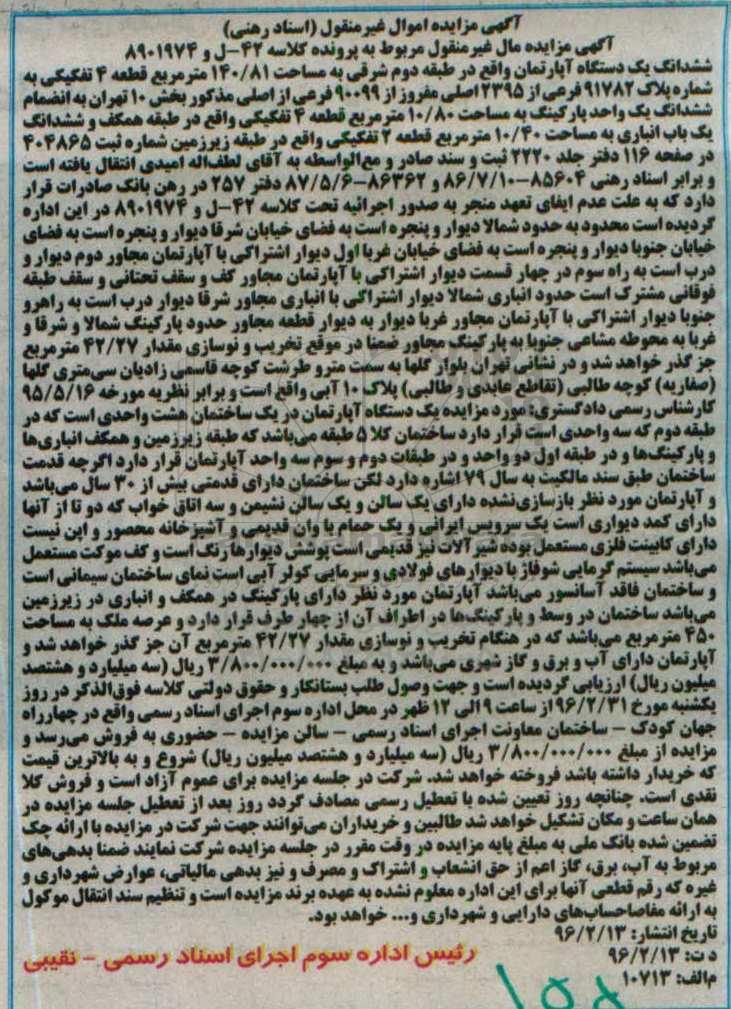 آگهی مزایده اموال غیرمنقول (اسناد رهنی)
آگهی مزایده مال غیرمنقول مربوط به پرونده کلاسه ۴۲-ل و ۸۹۰۱۹۷۴
ششدانگ یک دستگاه آپارتمان واقع در طبقه دوم شرقی به مساحت ۱۴۰/۸۱ مترمربع قطعه ۴ تفکیکی به
شماره پلاک ۹۱۷۸۲ فرعی از ۲۳۹۵ اصلی مفروز از ۹۰۰۹۹ فرعی از اصلی مذکور بخش ۱۰ تهران به انضمام
ششدانگ یک واحد پارکینگ به مساحت ۱۰/۸۰ مترمربع قطعه ۴ تفکیکی واقع در طبقه همکف و ششدانگ
یک باب انباری به مساحت ۱۰/۴۰ مترمربع قطعه ۲ تفکیکی واقع در طبقه زیرزمین شماره ثبت ۴۰۴۸۶۵
در صفحه ۱۱۶ دفتر جلد ۲۲۲۰ ثبت و سند صادر و مع‌الواسطه به آقای لطف‌اله امیدی انتقال یافته است
و برابر اسناد رهنی ۸۵۶۰۴-۸۶/۷/۱۰ و ۸۶۳۶۲-۸۷/۵/۶ دفتر ۲۵۷ در رهن بانک صادرات قرار
دارد که به علت عدم ایفای تعهد منجر به صدور اجرائیه تحت کلاسه ۴۲-ل و ۸۹۰۱۹۷۴ در این اداره
گردیده است محدود به حدود شمالا دیوار و پنجره است به فضای خیابان شرقا دیوار و پنجره است به فضای
خیابان جنوبا دیوار و پنجره است به فضای خیابان غربا اول دیوار اشتراکی با آپارتمان مجاور دوم دیوار و
درب است به راه سوم در چهار قسمت دیوار اشتراکی با آپارتمان مجاور کف و سقف تحتانی و سقف طبقه
فوقانی مشترک است حدود انباری شمالا دیوار اشتراکی با انباری مجاور شرقا دیوار درب است به راهرو
جنوبا دیوار اشتراکی با آپارتمان مجاور غربا دیوار به دیوار قطعه مجاور حدود پارکینگ شمالا و شرقا و
غربا به محوطه مشاعی جنوبا به پارکینگ مجاور ضمنا در موقع تخریب و نوسازی مقدار ۴۲/۲۷ مترمربع
جز گذر خواهد شد و در نشانی تهران بلوار گلها به سمت مترو طرشت کوچه قاسمی زادیان سی‌متری گلها
(صفاریه) کوچه طالبی (تقاطع عابدی و طالبی) پلاک ۱۰ آبی واقع است و برابر نظریه مورخه ۹۵/۵/۱۶
کارشناس رسمی دادگستری: مورد مزایده یک دستگاه آپارتمان در یک ساختمان هشت واحدی است که در
طبقه دوم که سه واحدی است قرار دارد ساختمان کلا ۵ طبقه می‌باشد که طبقه زیرزمین و همکف انباری‌ها
و پارکینگ‌ها و در طبقه اول دو واحد و در طبقات دوم و سوم سه واحد آپارتمان قرار دارد اگرچه قدمت
ساختمان طبق سند مالکیت به سال ۷۹ اشاره دارد لکن ساختمان دارای قدمتی بیش از ۳۰ سال می‌باشد
و آپارتمان مورد نظر بازسازی‌نشده دارای یک سالن و یک سالن نشیمن و سه اتاق خواب که دو تا از آنها
دارای کمد دیواری است یک سرویس ایرانی و یک حمام با وان قدیمی و آشپزخانه محصور و اپن نیست
دارای کابینت فلزی مستعمل بوده شیرآلات نیز قدیمی است پوشش دیوارها رنگ است و کف موکت مستعمل
می‌باشد سیستم گرمایی شوفاژ با دیوارهای فولادی و سرمایی کولر آبی است نمای ساختمان سیمانی است
و ساختمان فاقد آسانسور می‌باشد آپارتمان مورد نظر دارای پارکینگ در همکف و انباری در زیرزمین
می‌باشد ساختمان در وسط و پارکینگ‌ها در اطراف آن از چهار طرف قرار دارد و عرصه ملک به مساحت
۴۵۰ مترمربع می‌باشد که در هنگام تخریب و نوسازی مقدار ۴۲/۲۷ مترمربع آن جز گذر خواهد شد و
آپارتمان دارای آب و برق و گاز شهری می‌باشد و به مبلغ ۳/۸۰۰/۰۰۰/۰۰۰ ریال (سه میلیارد و هشتصد
میلیون ریال) ارزیابی گردیده است و جهت وصول طلب بستانکار و حقوق دولتی کلاسه فوق‌الذکر در روز
یکشنبه مورخ ۹۶/۲/۳۱ از ساعت ۹ الی ۱۲ ظهر در محل اداره سوم اجرای اسناد رسمی واقع در چهارراه
جهان کودک - ساختمان معاونت اجرای اسناد رسمی - سالن مزایده - حضوری به فروش می‌رسد و
مزایده از مبلغ ۳/۸۰۰/۰۰۰/۰۰۰ ریال (سه میلیارد و هشتصد میلیون ریال) شروع و به بالاترین قیمت
که خریدار داشته باشد فروخته خواهد شد. شرکت در جلسه مزایده برای عموم آزاد است و فروش کلا
نقدی است. چنانچه روز تعیین شده با تعطیل رسمی مصادف گردد روز بعد از تعطیل جلسه مزایده در
همان ساعت و مکان تشکیل خواهد شد طالبین و خریداران می‌توانند جهت شرکت در مزایده با ارائه چک
تضمین شده بانک ملی به مبلغ پایه مزایده در وقت مقرر در جلسه مزایده شرکت نمایند ضمنا بدهی‌های
مربوط به آب، برق، گاز اعم از حق انشعاب و اشتراک و مصرف و نیز بدهی مالیاتی، عوارض شهرداری و
غیره که رقم قطعی آنها برای این اداره معلوم نشده به عهده برنده مزایده است و تنظیم سند انتقال موکول
به ارائه مفاصاحساب‌های دارایی و شهرداری و... خواهد بود.
تاریخ انتشار: ۹۶/۲/۱۳
د ت: ۹۶/۲/۱۳
رئیس اداره سوم اجرای اسناد رسمی - نقیبی
م‌الف: ۱۰۷۱۳